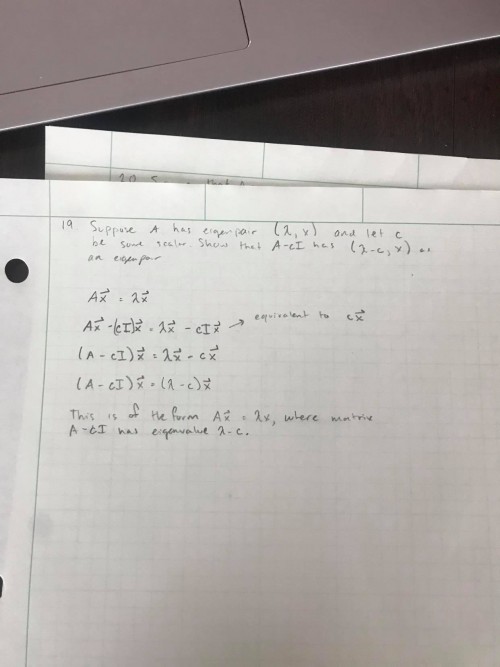 19 Suppose A has eigenpair (λ, x) and let c
be some scalar. Show that A-cI has (λ-c, x) as
an eigenpair
Ax⃗ = λx⃗
Ax⃗ -(cI)x⃗ = λx⃗ - cIx⃗ → equivalent to cx⃗
(A - cI)x⃗ = λx⃗ - cx⃗
(A - cI)x⃗ = (λ - c)x⃗
This is of the form Ax⃗ = λx, where matrix
A-cI has eigenvalue λ-c.